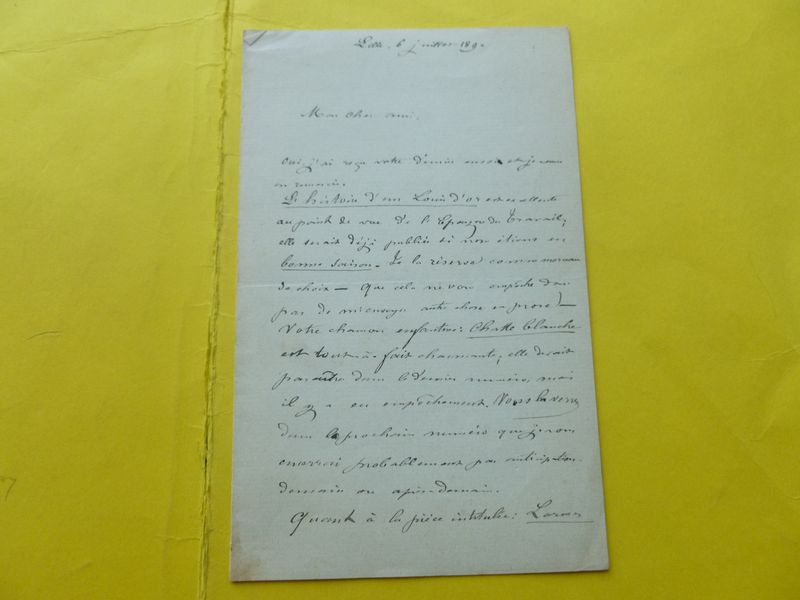 Lille, 6 juillet 189
Mon cher ami,
Oui, j'ai reçu votre dernier envoi et je vous
en remercie.
L'histoire d'un Louis d'or est excellente
au point de vue de l'Epargne du travail;
elle serait déjà publiée si nous étions en
bonne saison. Je la réserve comme morceau
de choix — Que cela ne vous empêche donc
pas de m'envoyer autre chose en prose! —
Votre chanson enfantine: Chatte blanche
est tout-à-fait charmante; elle devait
paraître dans le dernier numéro, mais
il y a eu empêchement. Vous la verrez
dans le prochain numéro que je vous
enverrai probablement par anticipation
demain ou après-demain.
Quant à la pièce intitulée: